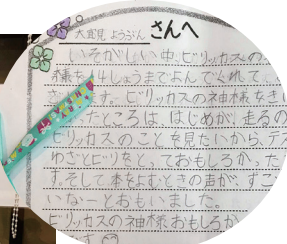 大食見 ようぶん さんへ
いそがしい中、ビリッカスの
様を4しょうまでよんでくれて、
ざ います。ビリッカスの神様をき
たところは、はじめが、走るの
ビリッカスのことを見たいから、
わざとビリをとっておもしろかった
す。そして本をよむときの声が、すご
いなーとおもいました。
ビリッカスの神様おもしろか
す